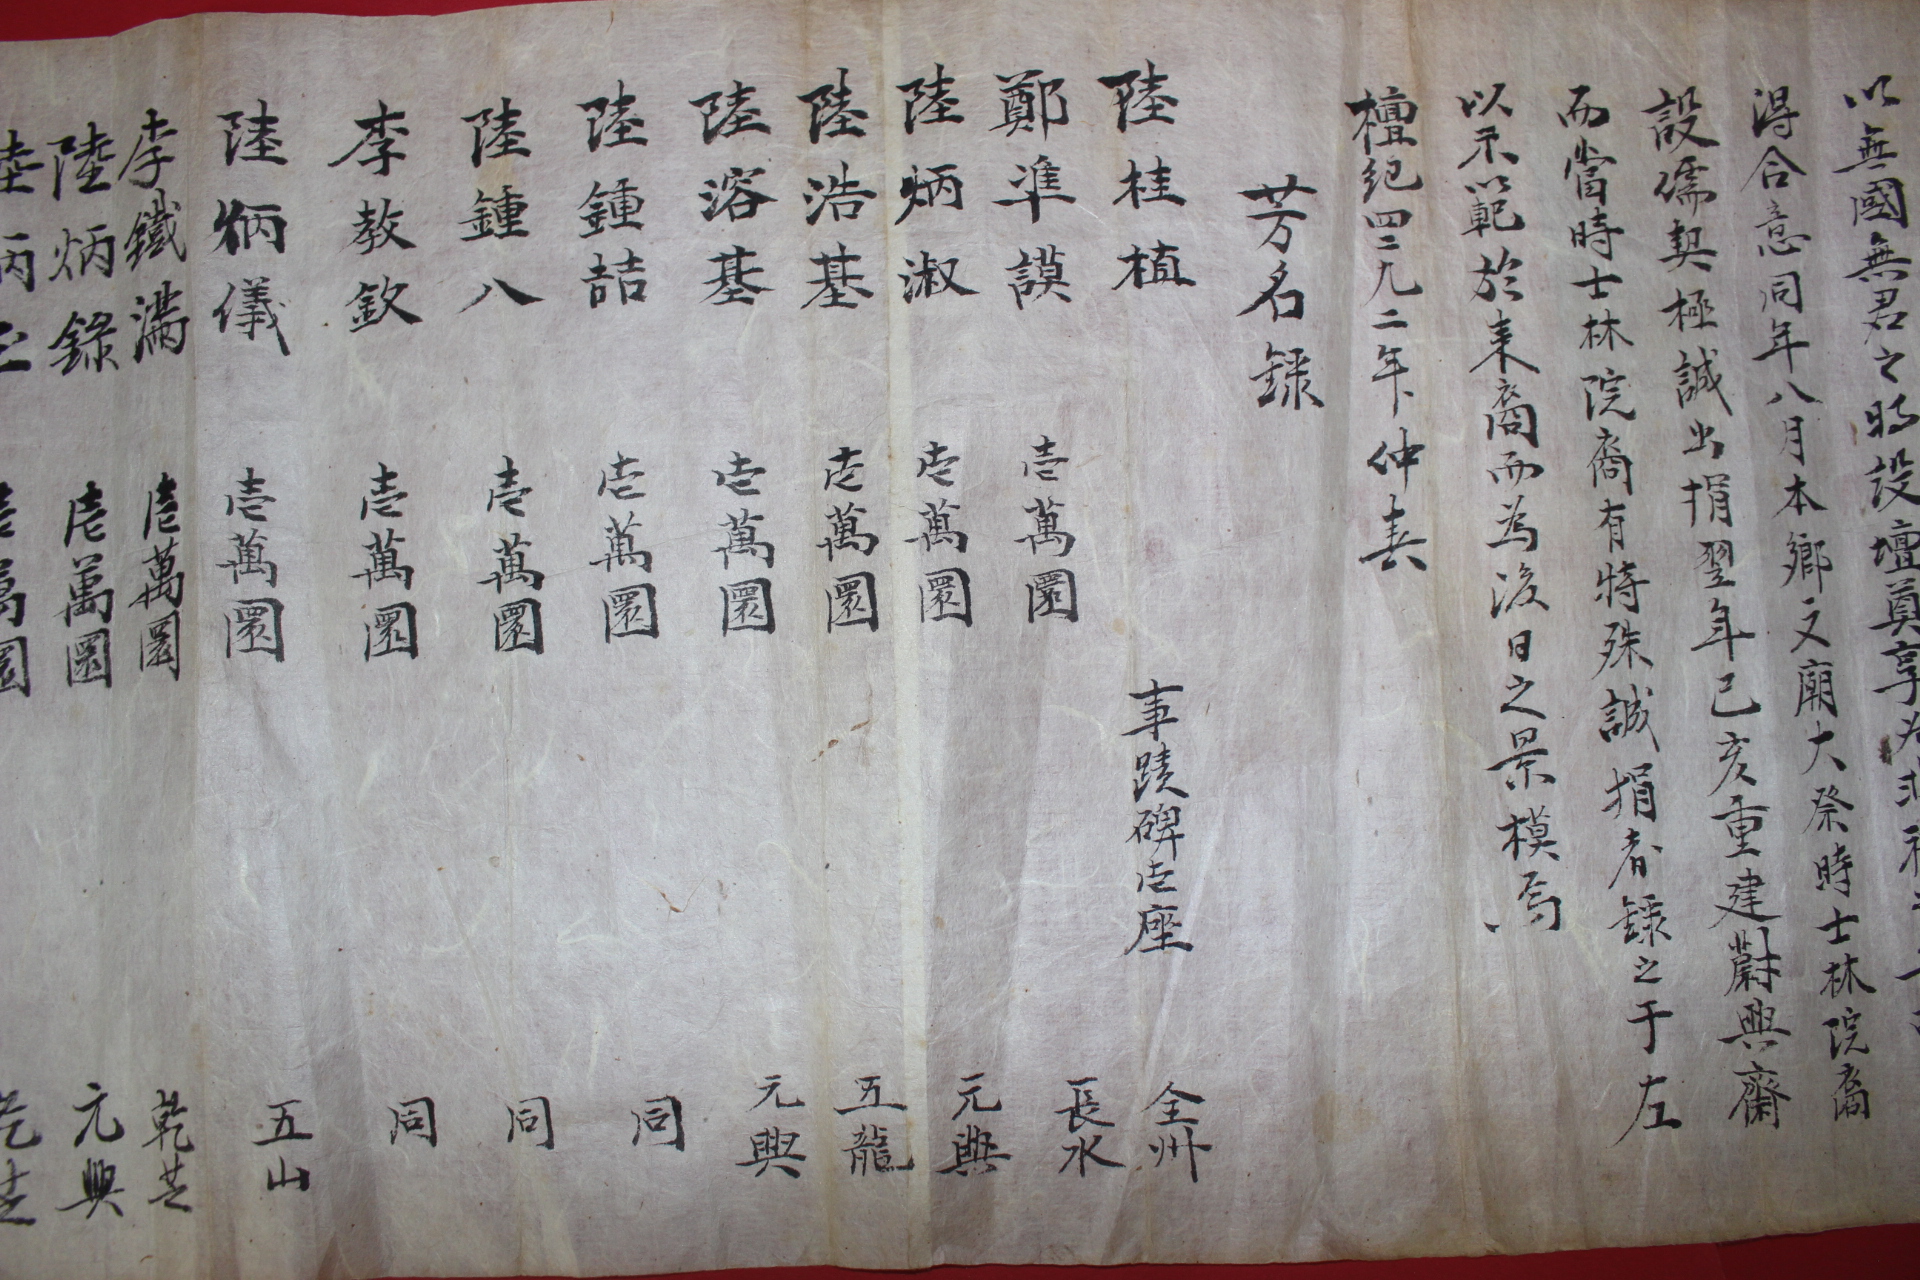 以無國無君之時設壇奠享
得合意同年八月本鄉文廟大祭時士林院裔
設儒契極誠出捐翌年己亥重建蔚興齋
而當時士林院裔有特殊誠捐者錄之于左
以示範於来裔而為後日之景模焉
檀紀四二九二年 仲春
芳名錄
陸桂植 事蹟碑壱座 全州
鄭準謨 壱萬圜 長水
陸炳淑 壱萬圜 元興
陸浩基 壱萬圜 五龍
陸溶基 壱萬圜 元興
陸鍾喆 壱萬圜 同
陸鍾八 壱萬圜 同
李教欽 壱萬圜 同
陸炳儀 壱萬圜 五山
李鐵滿 壱萬圜 乾芝
陸炳錄 壱萬圜 元興
陸炳 壱萬圜 乾芝